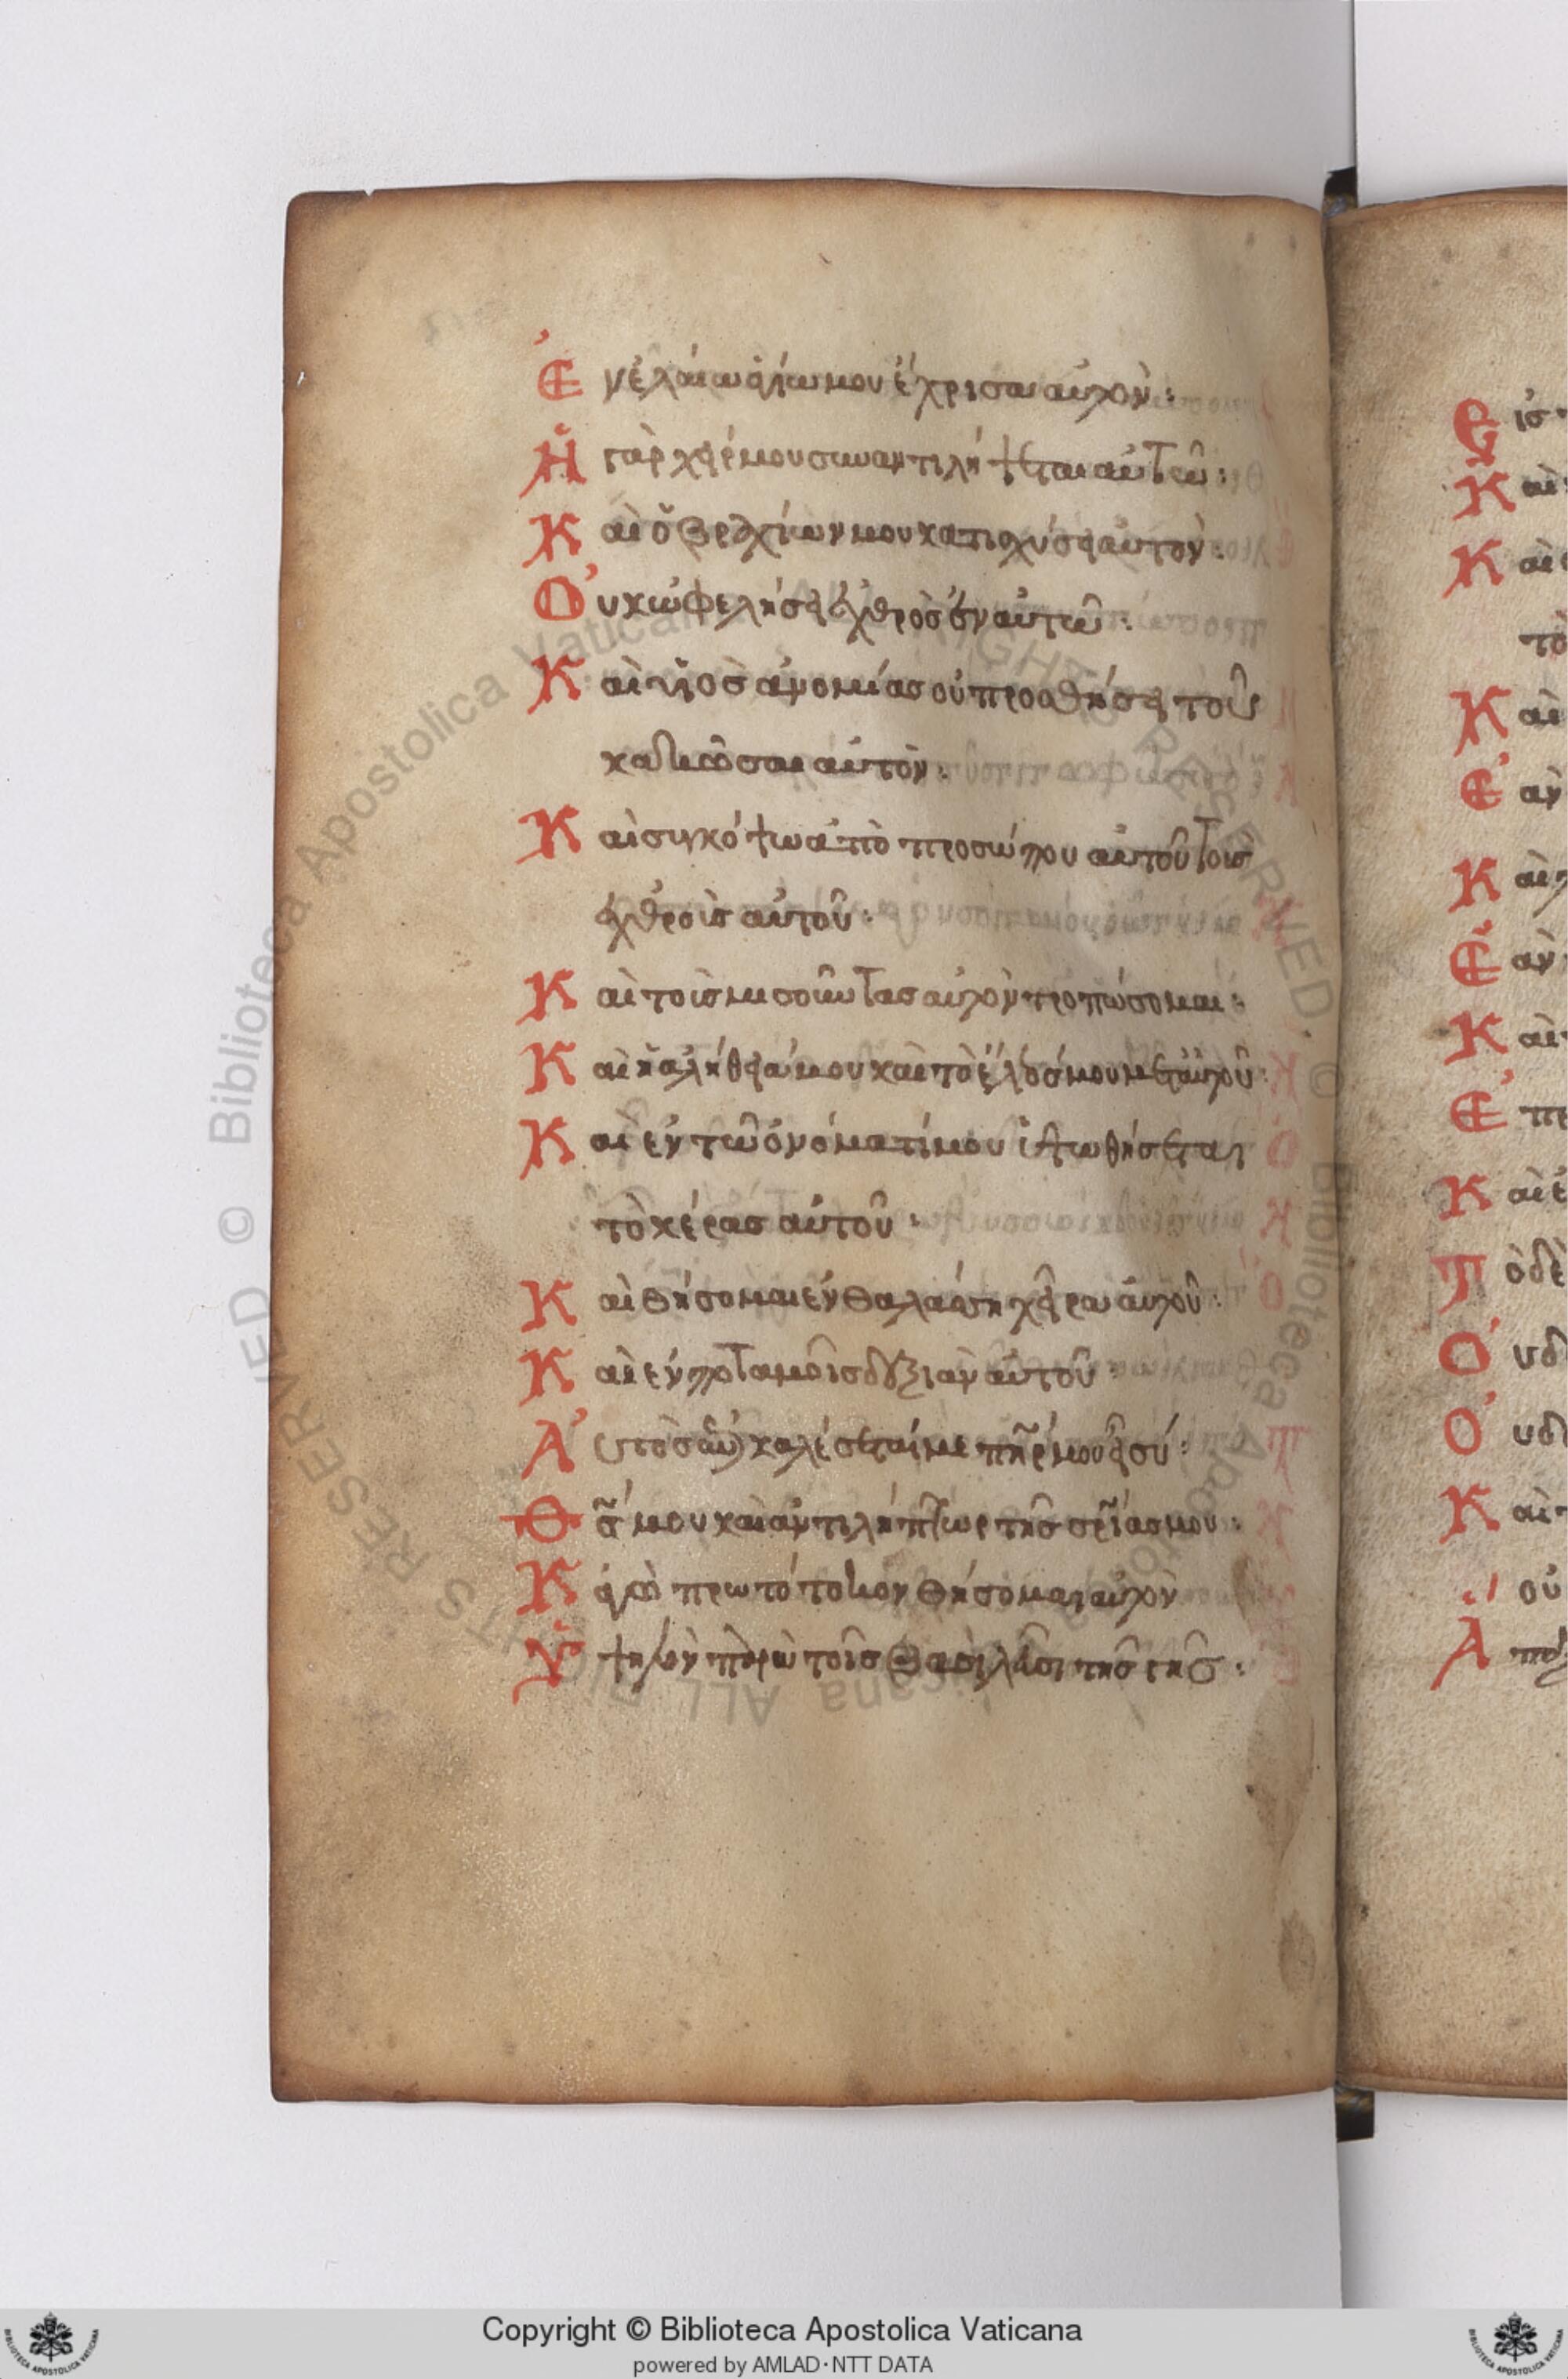 Ἐν ἐλαίω ἁγίω μου ἔχρισα αὐτὸν:
Ἡ γὰρ χείρ μου συναντιλήψεται αὐτῶ:
Καὶ ὁ βραχίων μου κατισχύσει αὐτὸν:
Οὐκ ὠφελήσει ἐχθρὸς ἐν αὐτῶ:
Καὶ υἱὸς ἀνομίας οὐ προσθήσει τοῦ
κακῶσαι αὐτὸν:
Καὶ συγκόψω ἀπὸ προσώπου αὐτοῦ τοὺς
ἐχθροὺς αὐτοῦ:
Καὶ τοὺς μισοῦντας αὐτὸν τροπώσομαι:
Καὶ ἡ ἀλήθειά μου καὶ τὸ ἔλεός μου μετ αὐτοῦ:
Καὶ ἐν τῶ ὀνόματί μου ὑψωθήσεται
τὸ κέρας αὐτοῦ:
Καὶ θήσομαι ἐν θαλάσση χεῖρα αὐτοῦ:
Καὶ ἐν ποταμοῖς δεξιὰν αὐτοῦ:
Αὐτὸς ἐπικαλέσεταί με πηρ μου εἶ σύ:
Θς μου καὶ ἀντιλήπτωρ τῆς σρίας μου:
Κἀγὼ πρωτότοκον θήσομαι αὐτὸν
Ὑψηλὸν παρὰ τοῖς βασιλεῦσι τῆς γῆς:
Copyright © Biblioteca Apostolica Vaticana
powered by AMLAD·NTT DATA